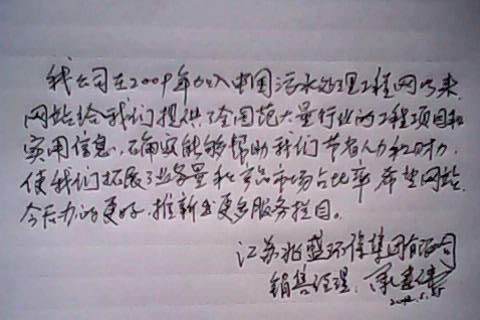 我公司在2009年加入中国污水处理工程网以来,
网站给我们提供了全国范大量行业的工程项目和
实用信息,确实能够帮助我们节省人力和财力,
使我们拓展了业务量和产品市场占比率 希望网站
今后办的更好,推新出更多服务栏目。
江苏兆盛环保集团有限公司
销售经理: